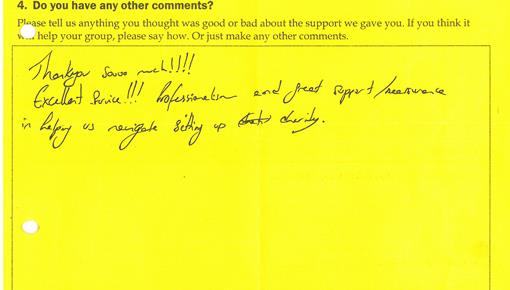 4. Do you have any other comments?
Please tell us anything you thought was good or bad about the support we gave you. If you think it
will help your group, please say how. Or just make any other comments.
Thankyou Sooo much!!!!
Excellent Service!!! Professionalism and great support/reassurance
in helping us navigate setting up charity.